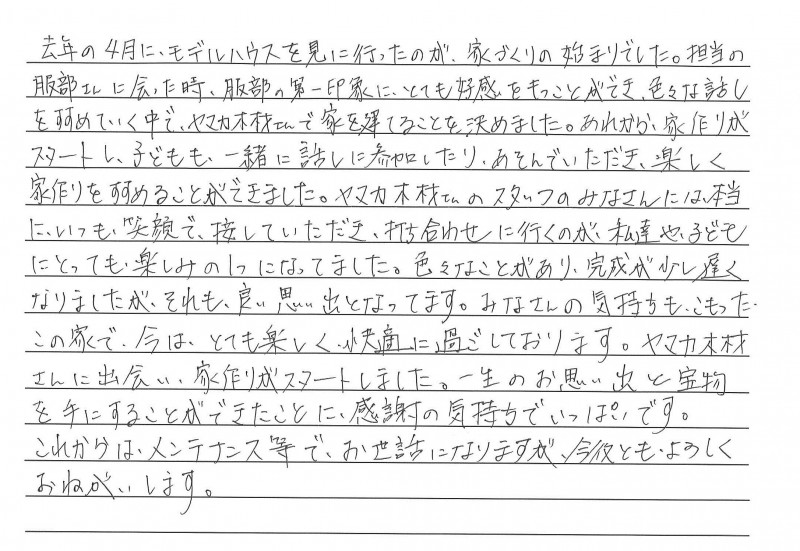 去年の4月に、モデルハウスを見に行ったのが、家づくりの始まりでした。担当の
服部さんに会った時、服部の第一印象に、とても好感をもつことができ、色々な話し
をすすめていく中で、ヤマカ木材さんで家を建てることを決めました。あれから、家作りが
スタートし、子どもも、一緒に話しに参加したり、あそんでいただき、楽しく
家作りをすすめることができました。ヤマカ木材さんのスタッフのみなさんには、本当
に、いつも、笑顔で、接していただき、打ち合わせに行くのが、私達や、子ども
にとっても、楽しみの1つになってました。色々なことがあり、完成が少し遅く
なりましたが、それも、良い思い出となってます。みなさんの気持ちも、こもった、
この家で、今は、とても楽しく、快適に過ごしております。ヤマカ木材
さんに出会い、家作りがスタートしました。一生のお思い出と宝物
を手にすることができたことに、感謝の気持ちでいっぱいです。
これからは、メンテナンス等で、お世話になりますが、今後とも、よろしく
おねがいします。